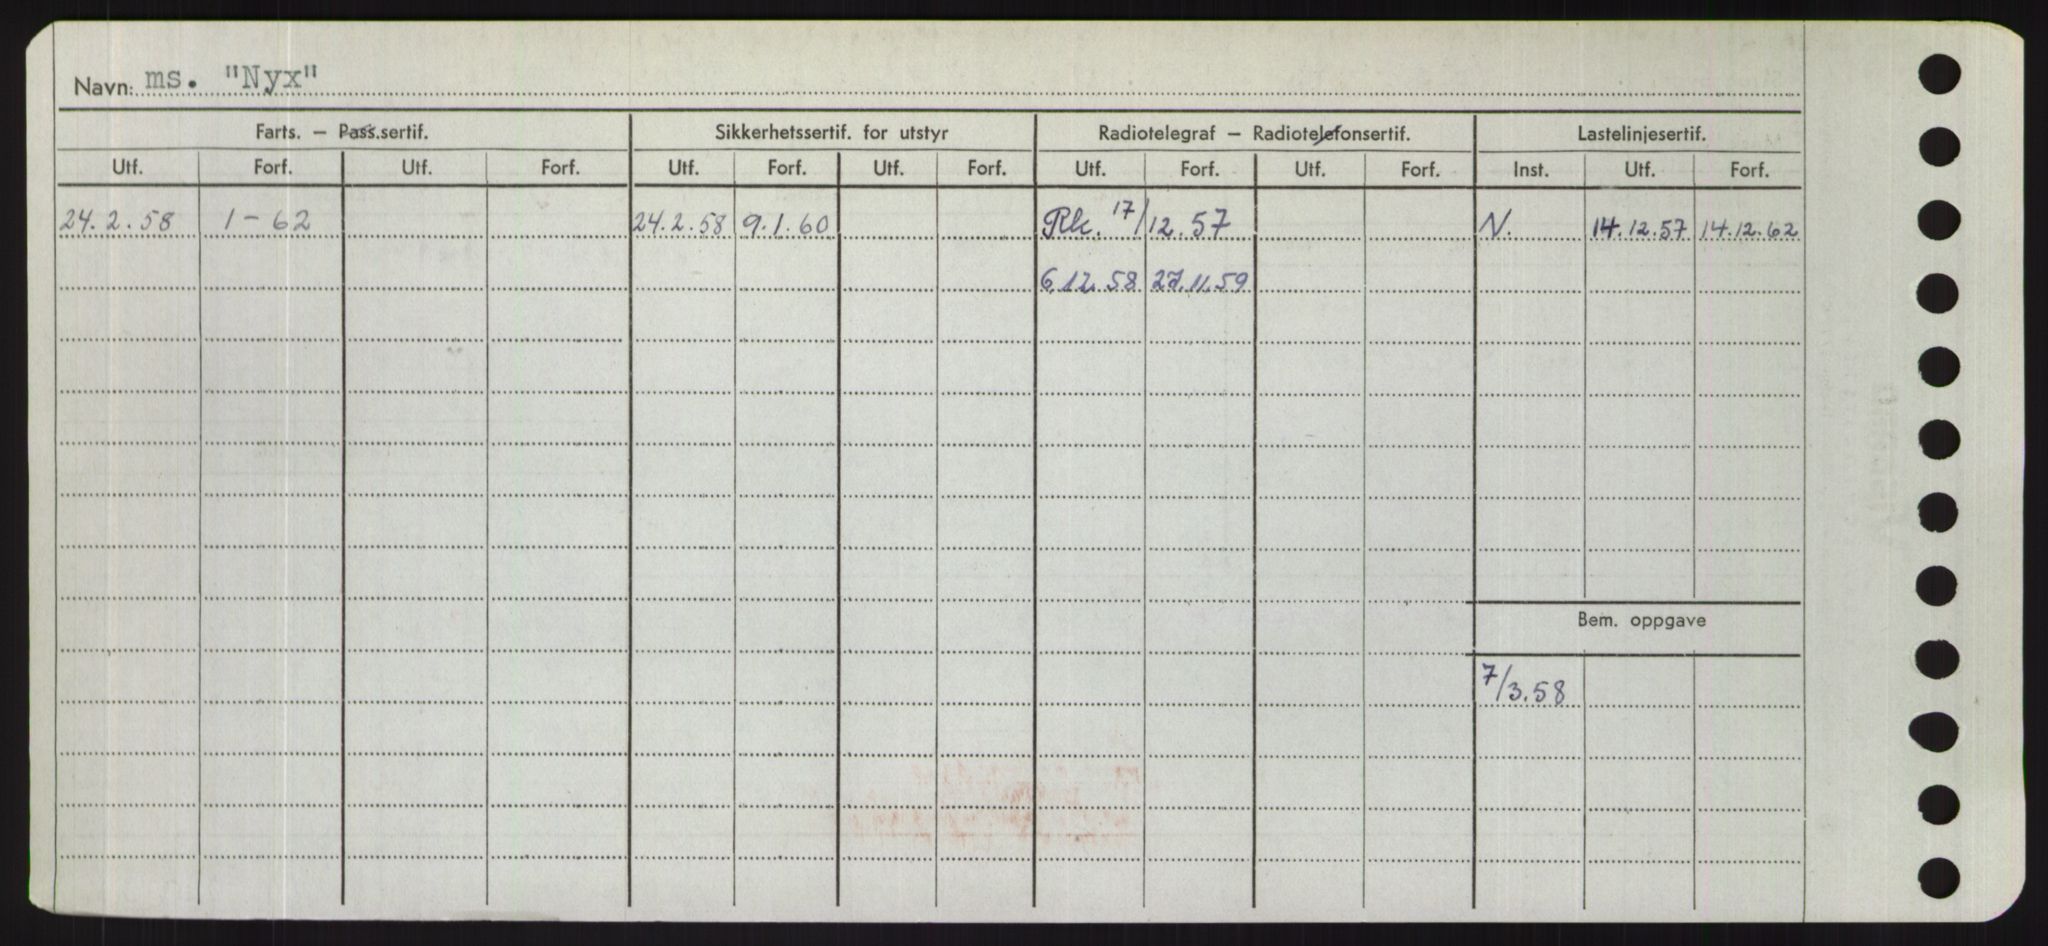 Navn: ms. "Nyx"
Farts. — Pass.sertif. Sikkerhetssertif. for utstyr Radiotelegraf — Radiotelefonsertif. Lastelinjesertif.
Utf. Forf. Utf. Forf. Utf. Forf. Utf. Forf. Utf. Forf. Utf. Forf. Inst. Utf. Forf.
24.2.58 1-62 24.2.58 9.1.60 Rk. 17/12.57 N. 14.12.57 14.12.62
6.12.58 27.11.59
Bem. oppgave
7/3.58